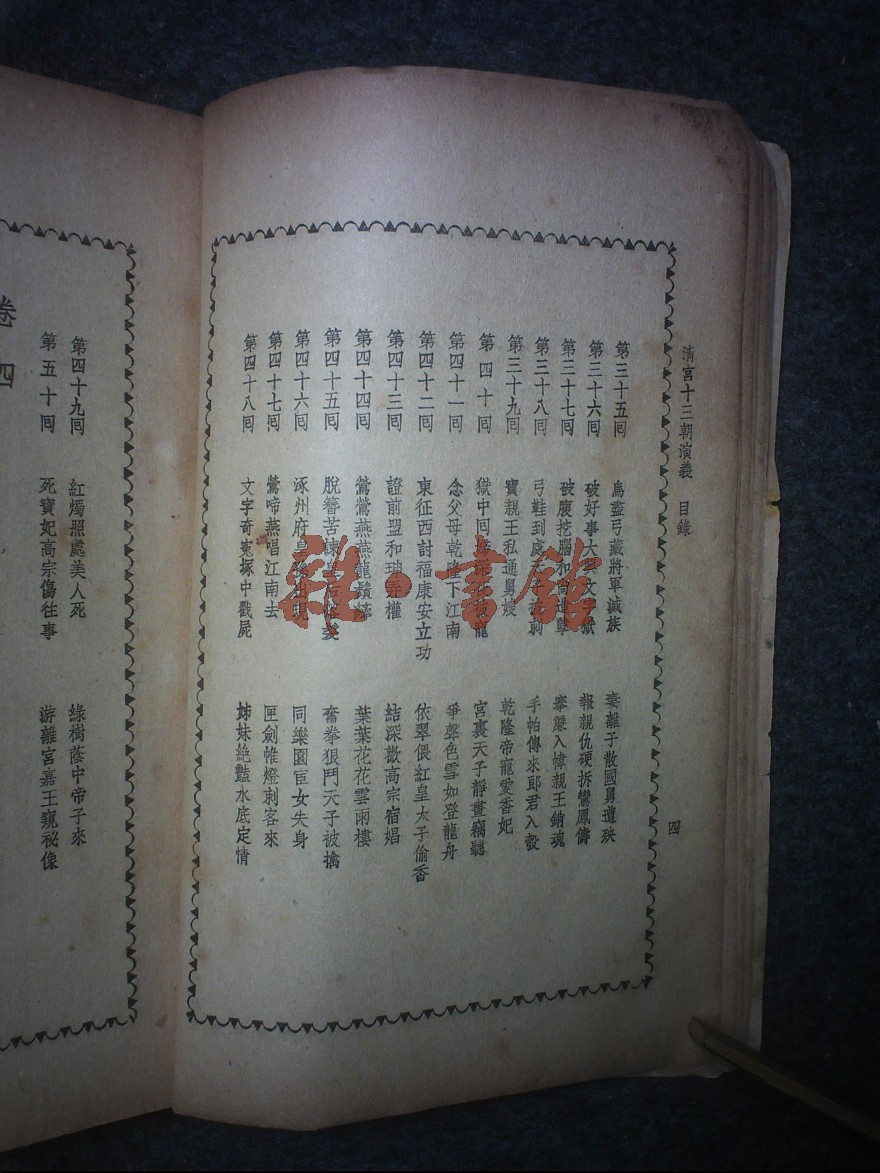 清宮十三朝演義 目錄 四
第三十五囘 鳥盡弓藏將軍滅族 妻離子散國舅遭殃
第三十六囘 破好事大 文 獄 報親仇硬拆鸞鳳儔
第三十七囘 破腹挖腦和尚 搴簾入幃親王銷魂
第三十八囘 弓鞋到處 手帕傳來郎君入彀
第三十九囘 寶親王私通舅嫂 乾隆帝寵愛香妃
第四十囘 獄中囘 龍 宮裏天子靜晝竊聽
第四十一囘 念父母乾隆下江南 爭聲色雪如登龍舟
第四十二囘 東征西討福康安立功 依翠偎紅皇太子偷香
第四十三囘 證前盟和珅弄權 結深歡高宗宿娼
第四十四囘 鶯鶯燕燕龍鬚 葉葉花花雲雨樓
第四十五囘 脫簪苦諫皇后 髮 奮拳狠鬥天子被擒
第四十六囘 涿州府皇 出現 同樂園宦女失身
第四十七囘 鶯啼燕唱江南去 匣劍帷燈刺客來
第四十八囘 文字奇冤塚中戳屍 姊妹絕豔水底定情
第四十九囘 紅燭照處美人死 綠樹蔭中帝子來
第五十囘 死寶妃高宗傷往事 游離宮嘉王窺祕像
卷四
雜·書館